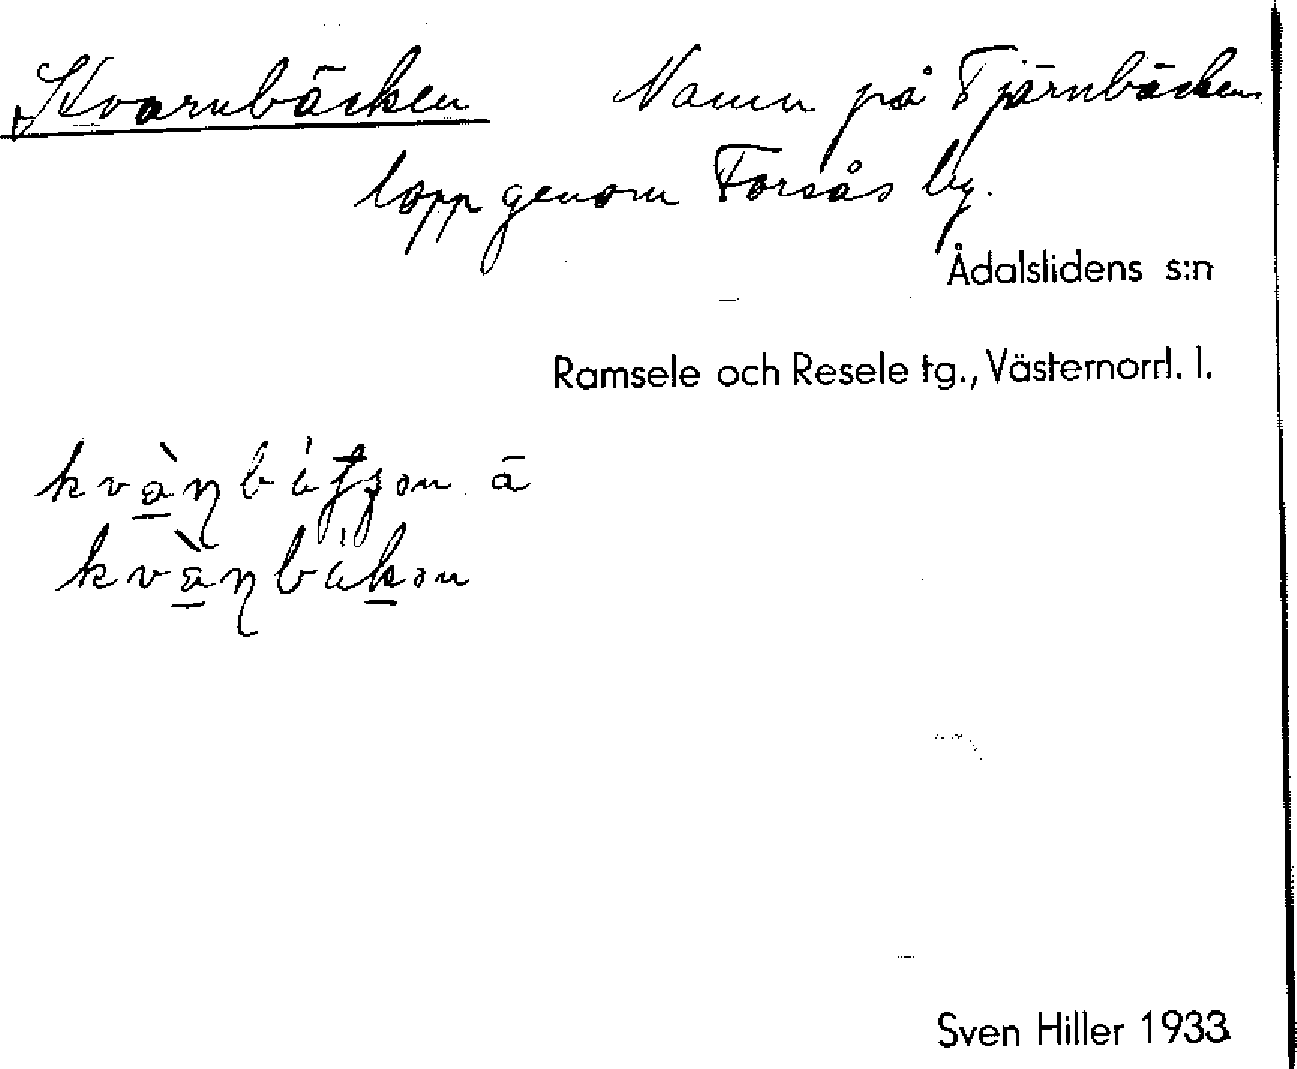 Kvarnbäcken Namn på Tjärnbäckens
lopp genom Forsås by.
Ådalslidens s:n
Ramsele och Resele tg., Västernorrl. l.
Sven Hiller 1933